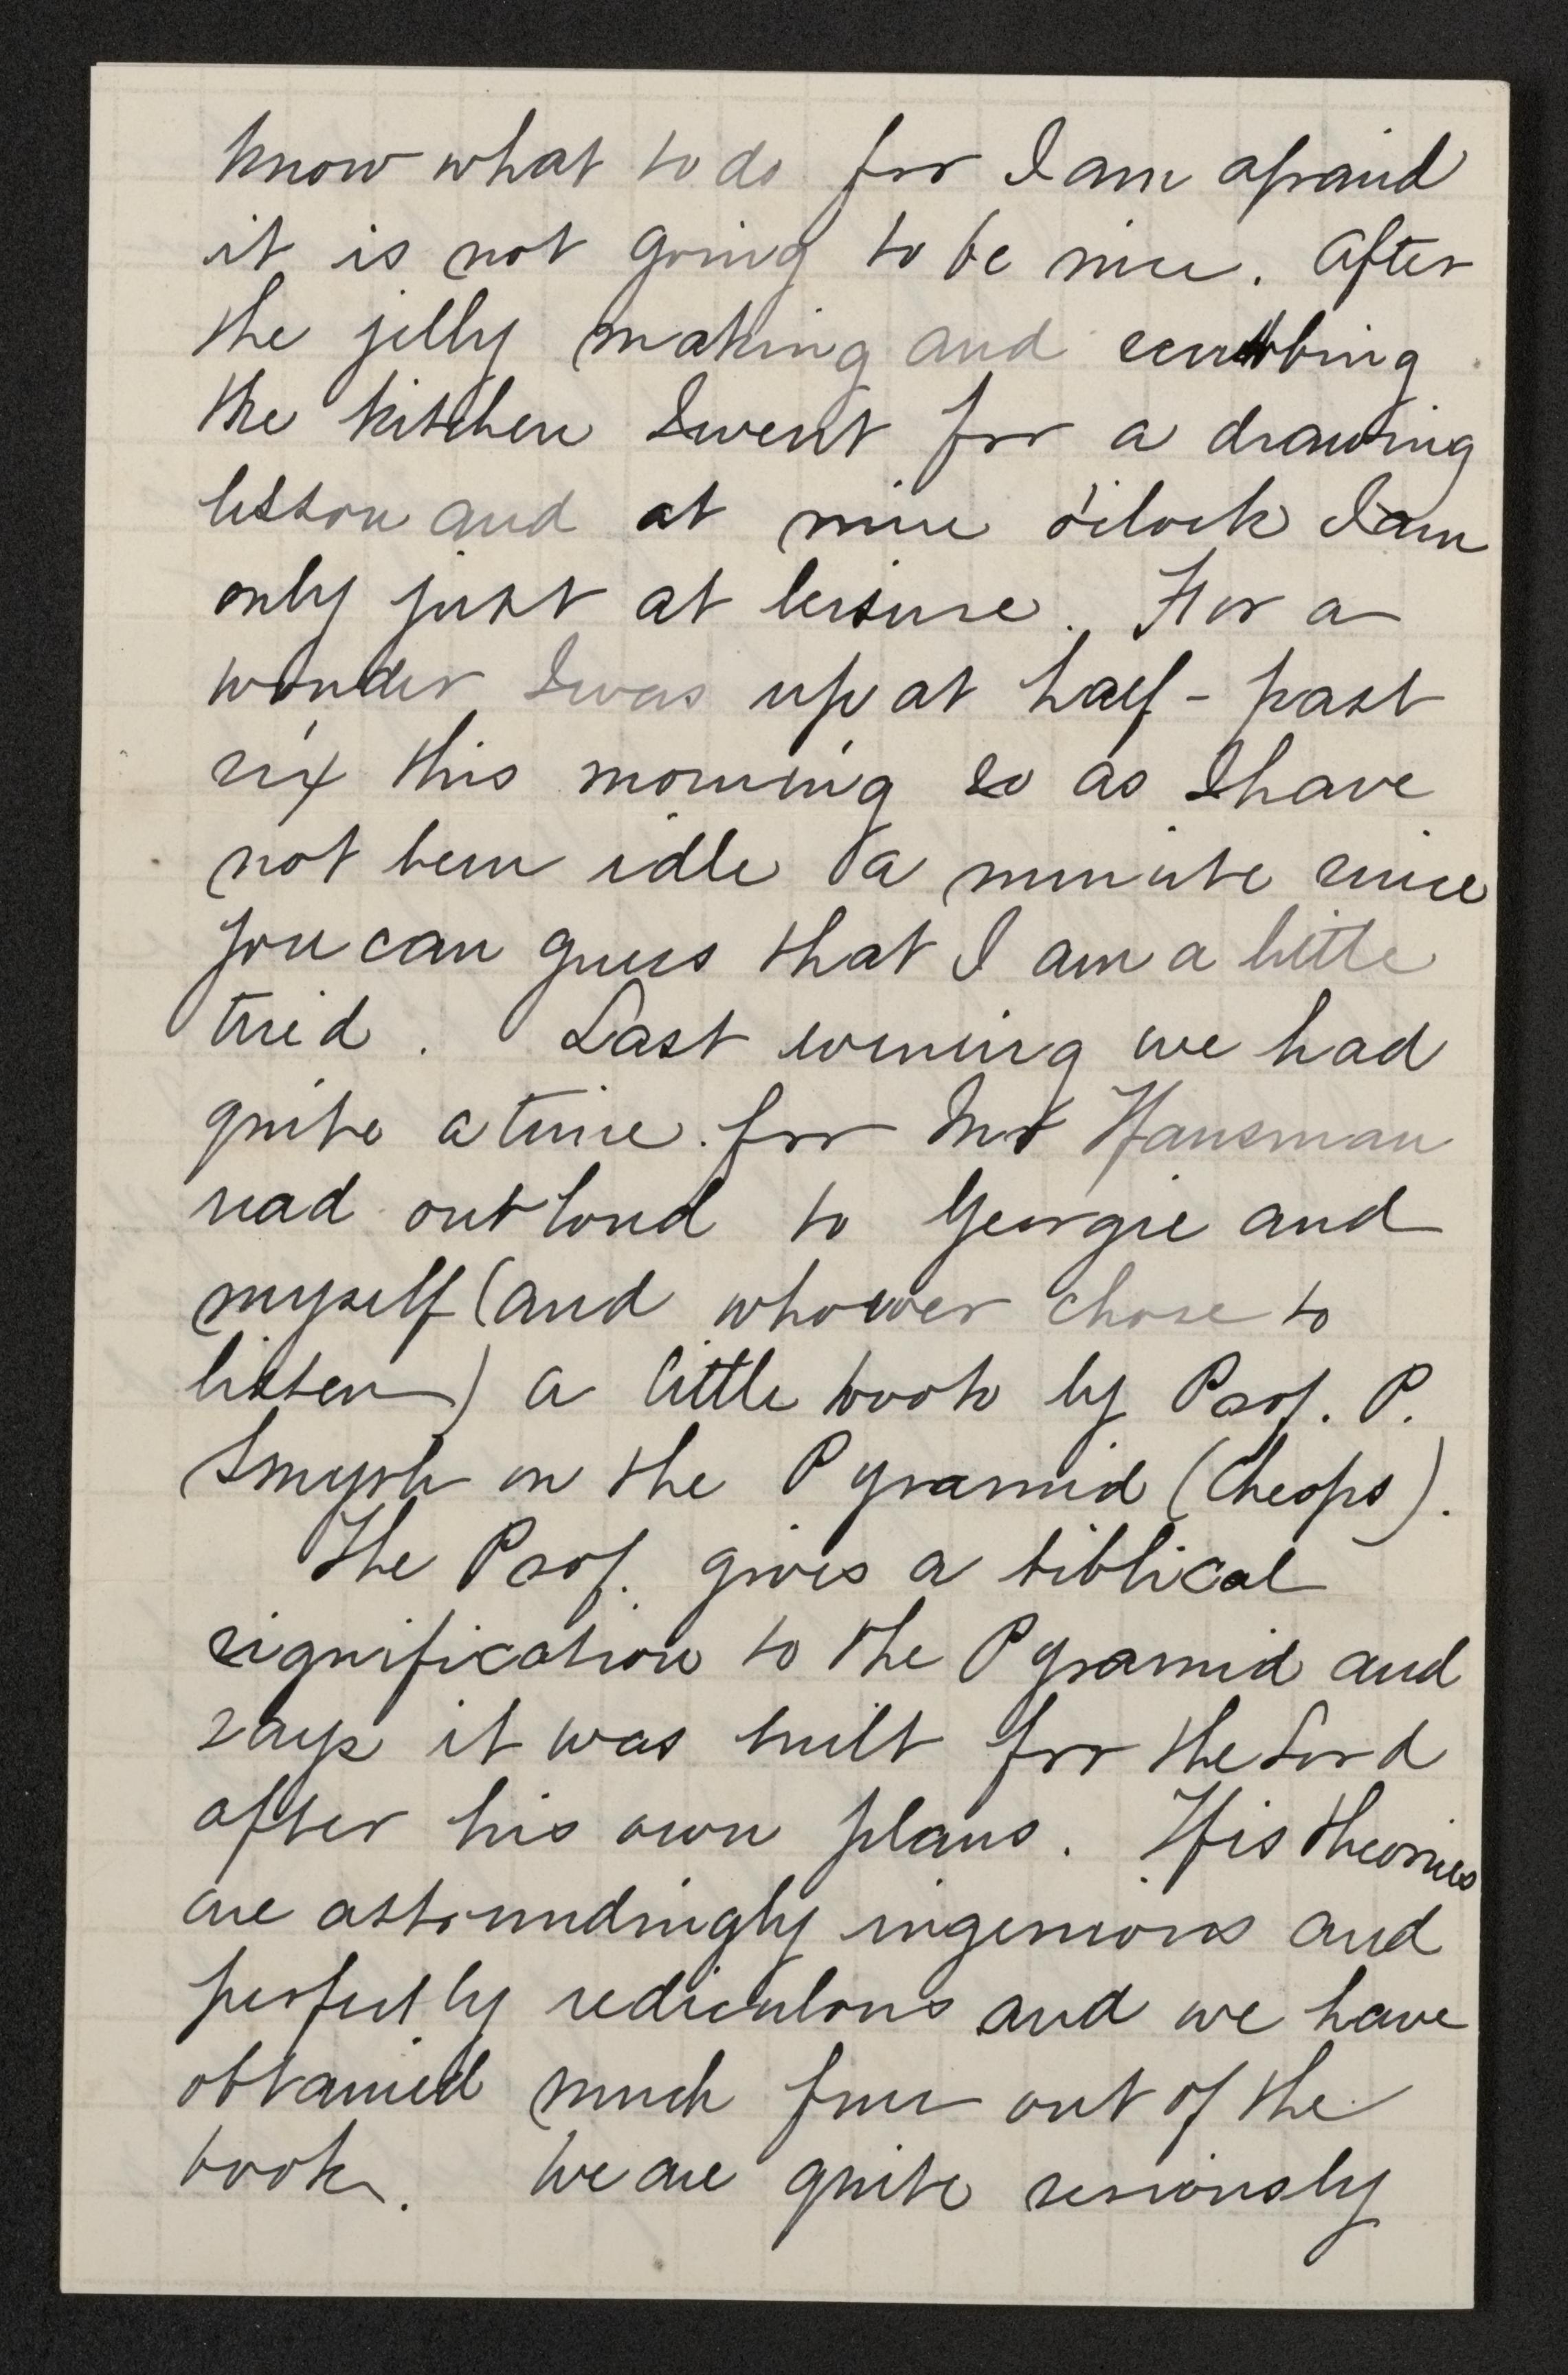 know what to do for I am afraid
it is not going to be nice. After
the jelly making and scrubbing
the kitchen I went for a drawing
lesson and at nine o'clock I am
only just at leisure. For a
wonder I was up at half-past
six this morning so as I have
not been idle a minute since
you can guess that I am a little
tired. Last evening we had
quite a time for Mr Hansman
read out loud to Georgie and
myself (and whoever chose to
listen) a little book by Prof. P.
Smyth on the Pyramid (Cheops).
The Prof. gives a biblical
signification to the Pyramid and
says it was built for the Lord
after his own plans. His theories
are astoundingly ingenious and
perfectly rediculous and we have
obtained much fun out of the
book. We are quite seriously